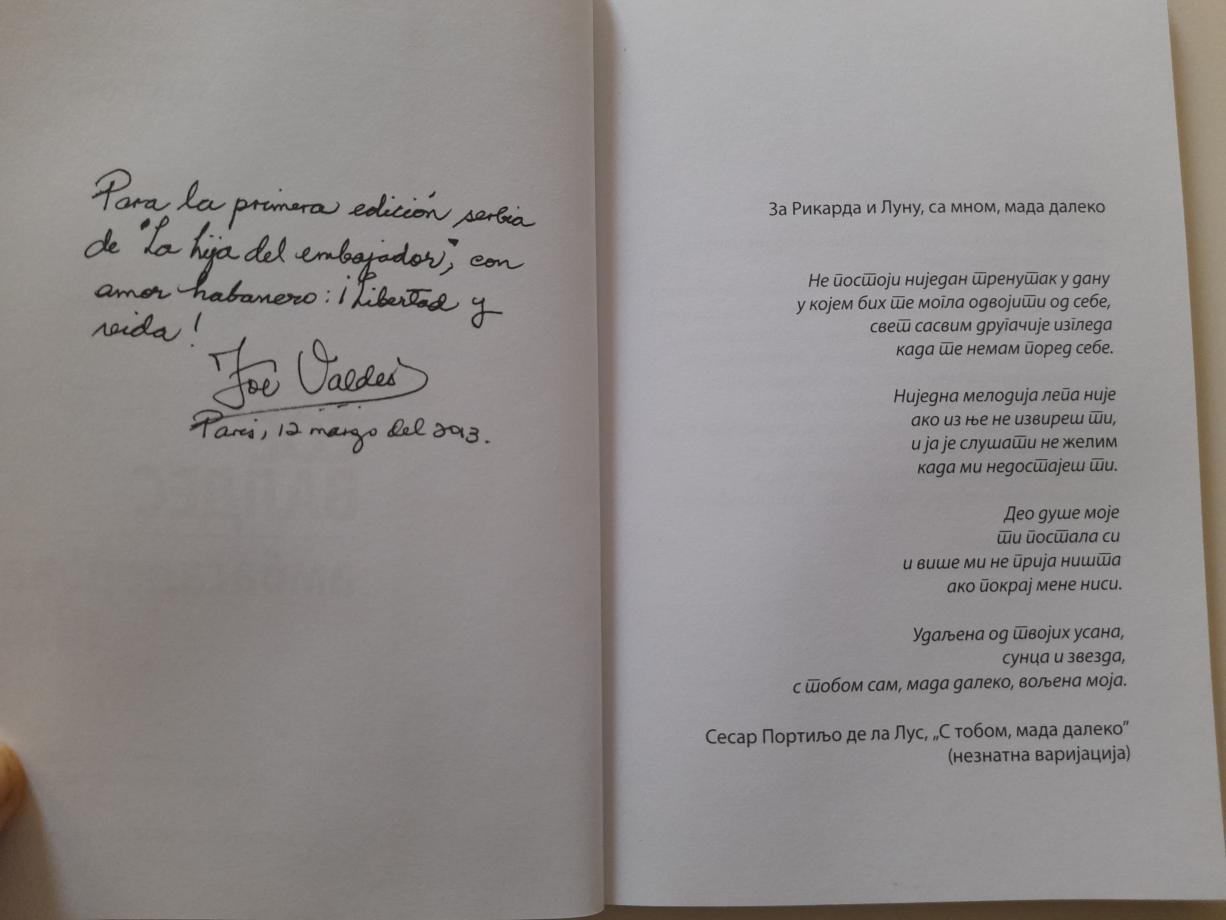 Para la primera edición serbia
de "La hija del embajador", con
amor habanero: ¡Libertad y
vida!
Zoé Valdés
Paris, 12 marzo del 2013.
За Рикарда и Луну, са мном, мада далеко
Не постоји ниједан тренутак у дану
у којем бих те могла одвојити од себе,
свет сасвим другачије изгледа
када те немам поред себе.
Ниједна мелодија лепа није
ако из ње не извиреш ти,
и ја је слушати не желим
када ми недостајеш ти.
Део душе моје
ти постала си
и више ми не прија ништа
ако покрај мене ниси.
Удаљена од твојих усана,
сунца и звезда,
с тобом сам, мада далеко, вољена моја.
Сесар Портиљо де ла Лус, „С тобом, мада далеко”
(незнатна варијација)